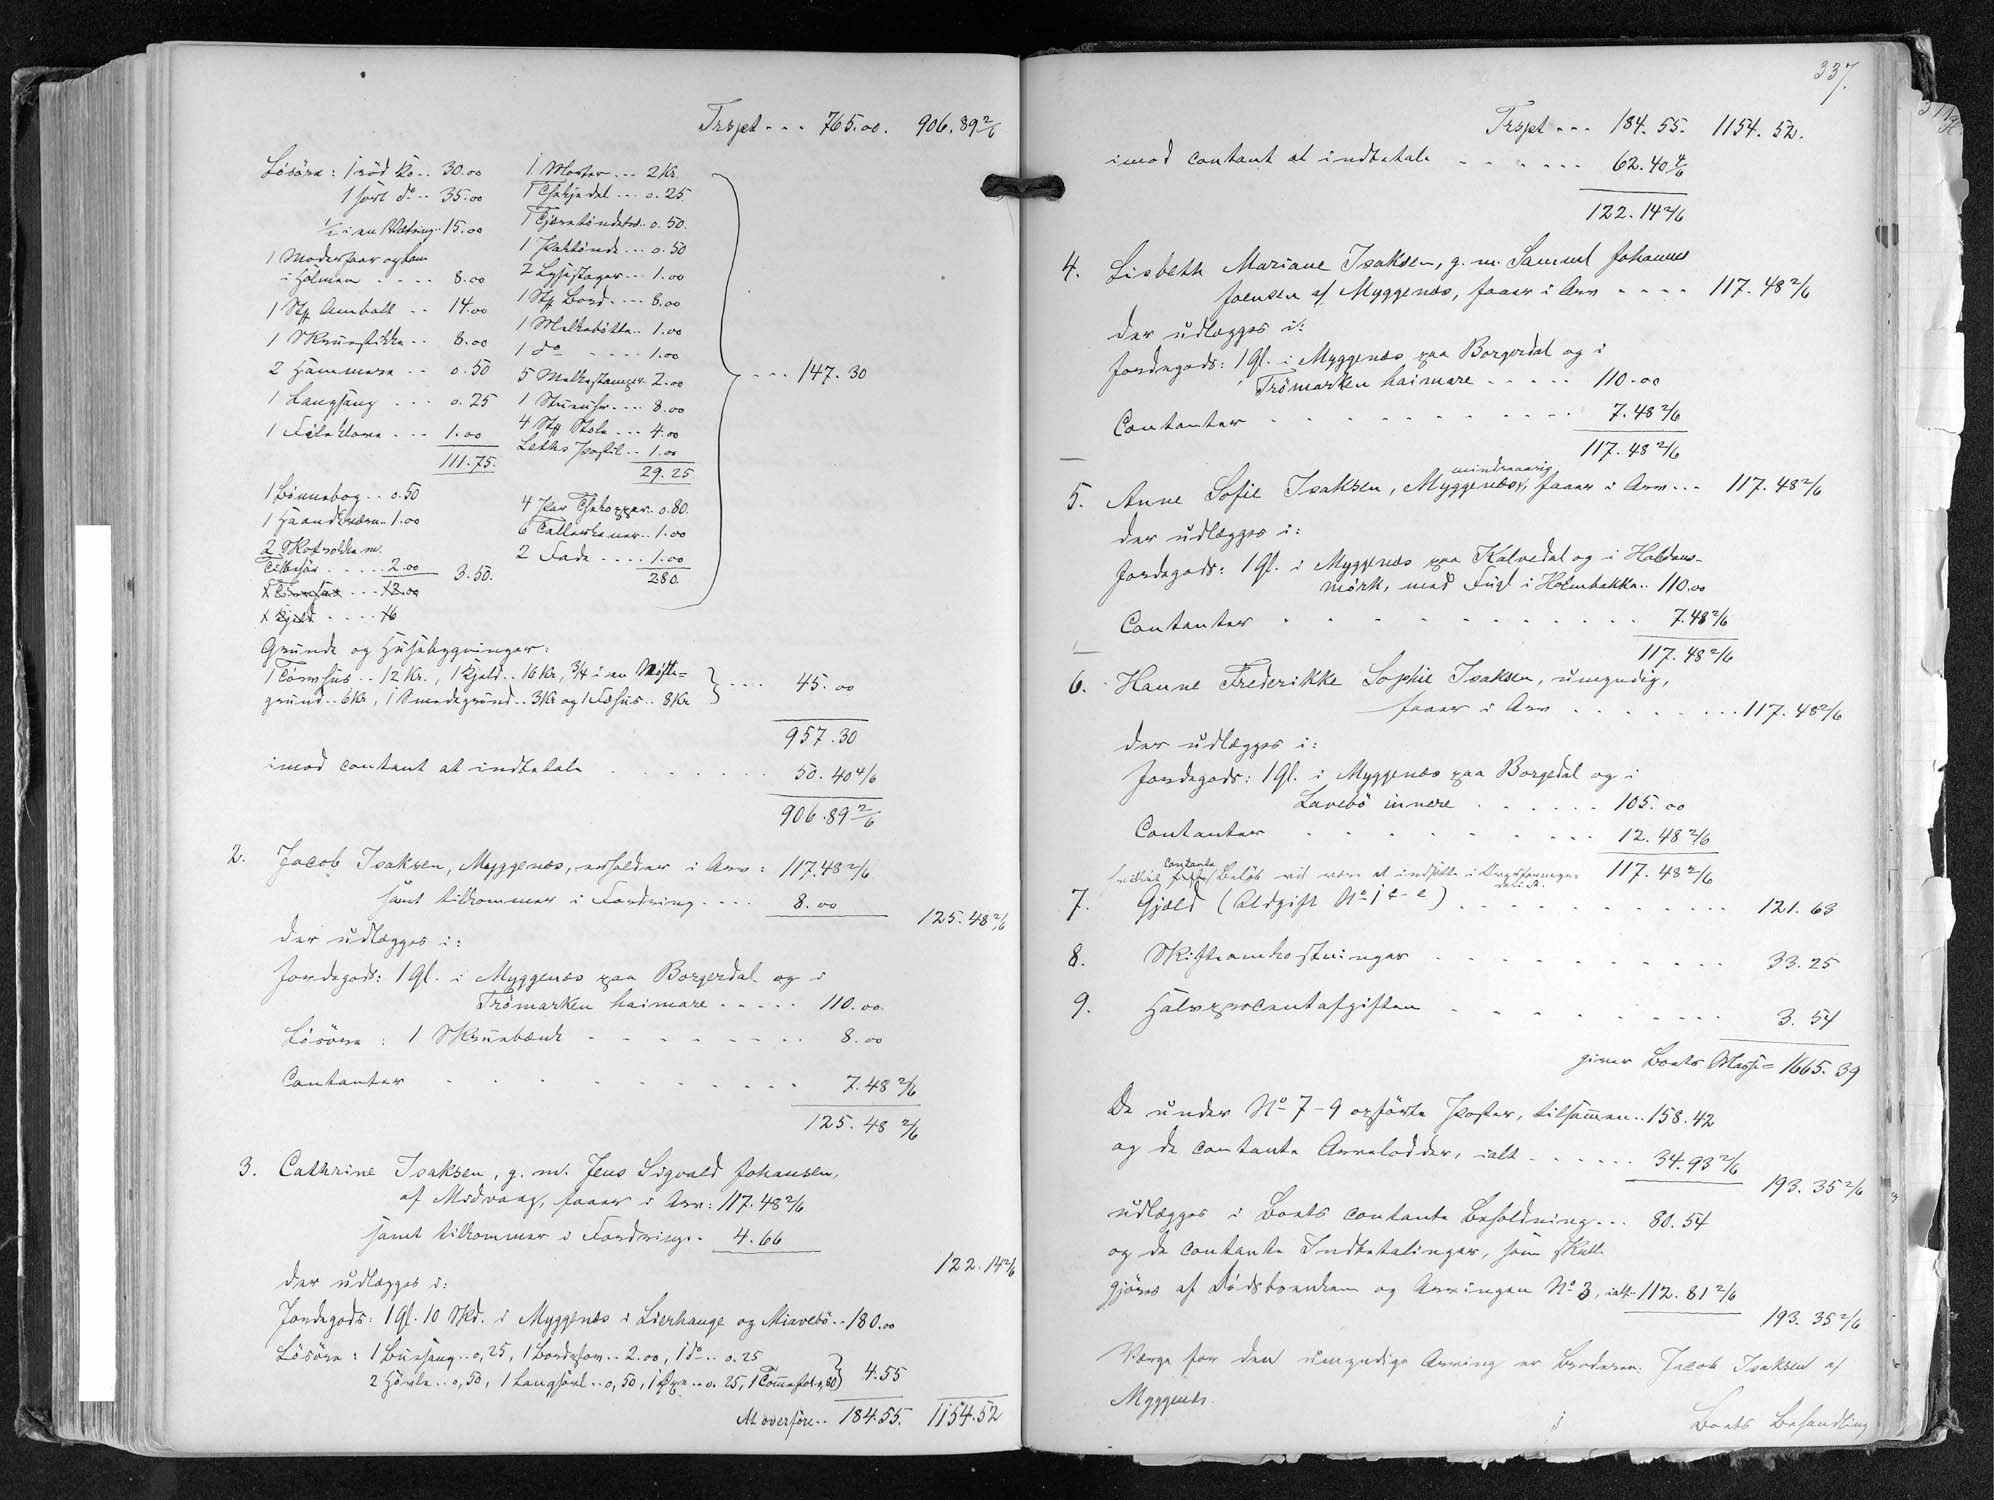 Trspt - - - 765.00. 906.89 2/6
Løsøre: 1 röd Ko.. 30.00
1 sort do .. 35.00
1/2 i en Vædring.. 15.00
1 Moderfaar og Lam
i Holmen - - - - 8.00
1 Stk Ambolt - - 14.00
1 Skruestikke - - 8.00
2 Hammere - - 0.50
1 Langtang - - - 0.25
1 Fileklove - - - 1.00
111.75.
1 Morter - - - 2 Kr.
1 Thekjedel - - - 0.25.
1 Tjæretönde - - 0.50.
1 Ituntönde - - - 0.50
2 Lysestager - - 1.00
1 Stk Bord - - - 8.00
1 Melkebötte - - 1.00
1 do - - - - 1.00
5 Melkestamper 2.00
1 Stueuhr - - - 8.00
4 Stk Stole - - - 4.00
Leths Postil - - 1.00
29.25
- - - 147.30
1 Bönnebog - - 0.50
1 Haandkværn - 1.00
2 Skotrokke m.
Tilbehör - - - - 2.00 3.50.
1 Törvhus - - - 12.00
1 Kjeld - - - - 16
4 Par Thekopper - 0.80.
6 Tallerkener - - 1.00
2 Fade - - - - 1.00
280.
Grunde og Husebygninger:
1 Törvhus - - 12 Kr., 1 Kjeld - - 16 Kr, 3/4 i en Nöste=
grund - - 6 Kr, 1 Smedegrund - - 3 Kr og 1 Fæhus - - 8 Kr - - - 45.00
957.30
imod contant at indbetale - - - - - - - 50.40 4/6
906.89 2/6
2. Jacob Isaksen, Myggenæs, erholder i Arv: 117.48 2/6
samt tilkommer i Fordring - - - - 8.00
125.48 2/6
der udlægges i:
Jordegods: 1 Gl. i Myggenæs paa Borgerdal og i
Trömarken haimare - - - - - 110.00
Lösöre: 1 Skruebænk - - - - - - - - 8.00
Contanter - - - - - - - - - 7.48 2/6
125.48 2/6
3. Cathrine Isaksen, g. m. Jens Sigvald Johansen,
af Midvaag, faaer i Arv: 117.48 2/6
samt tilkommer i Fordring - 4.66
122.14 2/6
der udlægges i:
Jordegods: 1 Gl. 10 Skd. i Myggenæs i Lierhauge og Miavebö - - 180.00
Lösöre: 1 Buxtang - - 0,25, 1 Bordskov - - 2.00, 1 do - - 0.25
2 Hövle - - 0,50, 1 Langhövl - - 0,50, 1 Öxe - - 0.25, 1 Tomestok 0,80 4.55
At overföre - - 184.55. 1154.52
337.
Trspt - - - 184.55. 1154.52.
imod contant at indbetale - - - - - - 62.40 4/6
122.14 2/6
4. Lisbeth Mariane Isaksen, g. m. Samuel Johannes
Joensen af Myggenæs, faaer i Arv - - - - 117.48 2/6
der udlægges i:
Jordegods: 1 Gl. i Myggenæs paa Borgerdal og i
Trömarken haimare - - - - - 110.00
Contanter - - - - - - - - - - 7.48 2/6
117.48 2/6
mindreaarig
5. Anne Sofie Isaksen, Myggenæs, faaer i Arv - - - 117.48 2/6
der udlægges i:
Jordegods: 1 Gl. i Myggenæs paa Kalvedal og i Haldans-
mörk, med Fugl i Holmbakka - - 110.00
Contanter - - - - - - - - - - - 7.48 2/6
117.48 2/6
6. Hanne Frederikke Sophie Isaksen, umyndig,
faaer i Arv - - - - - - - 117.48 2/6
der udlægges i:
Jordegods: 1 Gl. i Myggenæs paa Borgedal og i
Lavebö innere - - - - - - 105.00
Contanter - - - - - - - - - - 12.48 2/6
contante
hvilket Beløb vil være at indsætte i Overformynderiet. 117.48 2/6
7. Gjæld (Udgift No 1 - ) - - - - - - - - - - - 121.63
8. Skifteomkostninger - - - - - - - - - - - 33.25
9. Halvprocentafgiften - - - - - - - - - - 3.54
giver Boets Masse = 1665.39
De under No 7-9 opförte Poster, tilsammen - - 158.42
og de contante Arvelodder, ialt - - - - - - 34.93 2/6
193.35 2/6
udlægges i Boets contante Beholdning - - - 80.54
og de contante Indbetalinger, som skulle
gjöres af Dödsboenken og Arvingen No 3, ialt - 112.81 2/6
193.35 2/6
Værge for den umyndige Arving er Broderen: Jacob Isaksen af
Myggenæs.
Boets Behandling